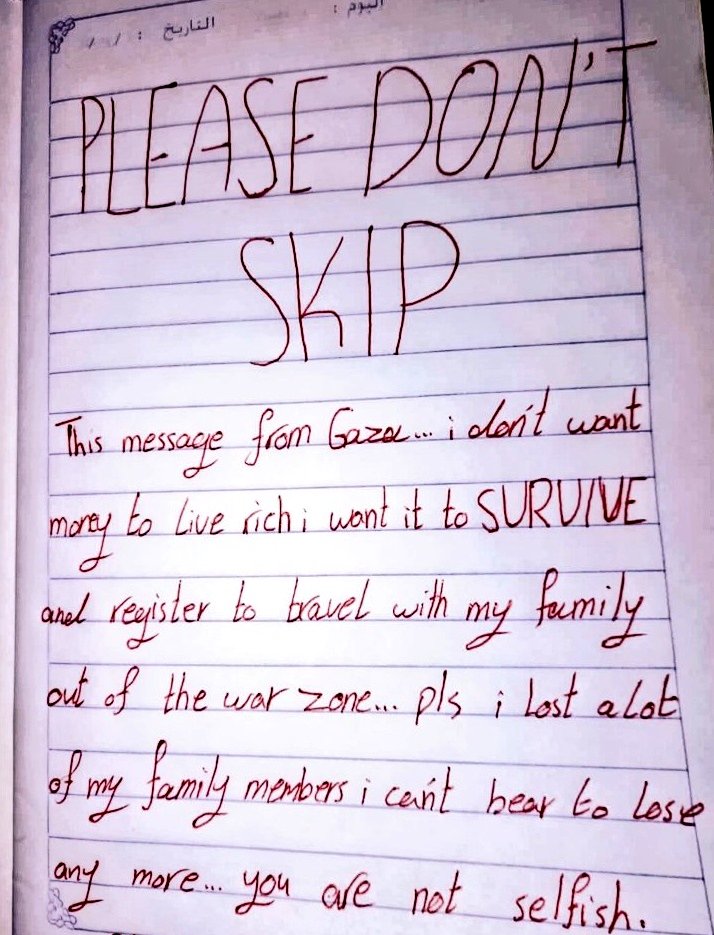 اليوم :
التاريخ : / /
PLEASE DON'T
SKIP
This message from Gaza... i don't want
money to live rich i want it to SURVIVE
and register to travel with my family
out of the war zone... pls i lost alot
of my family members i can't bear to lose
any more... you are not selfish.